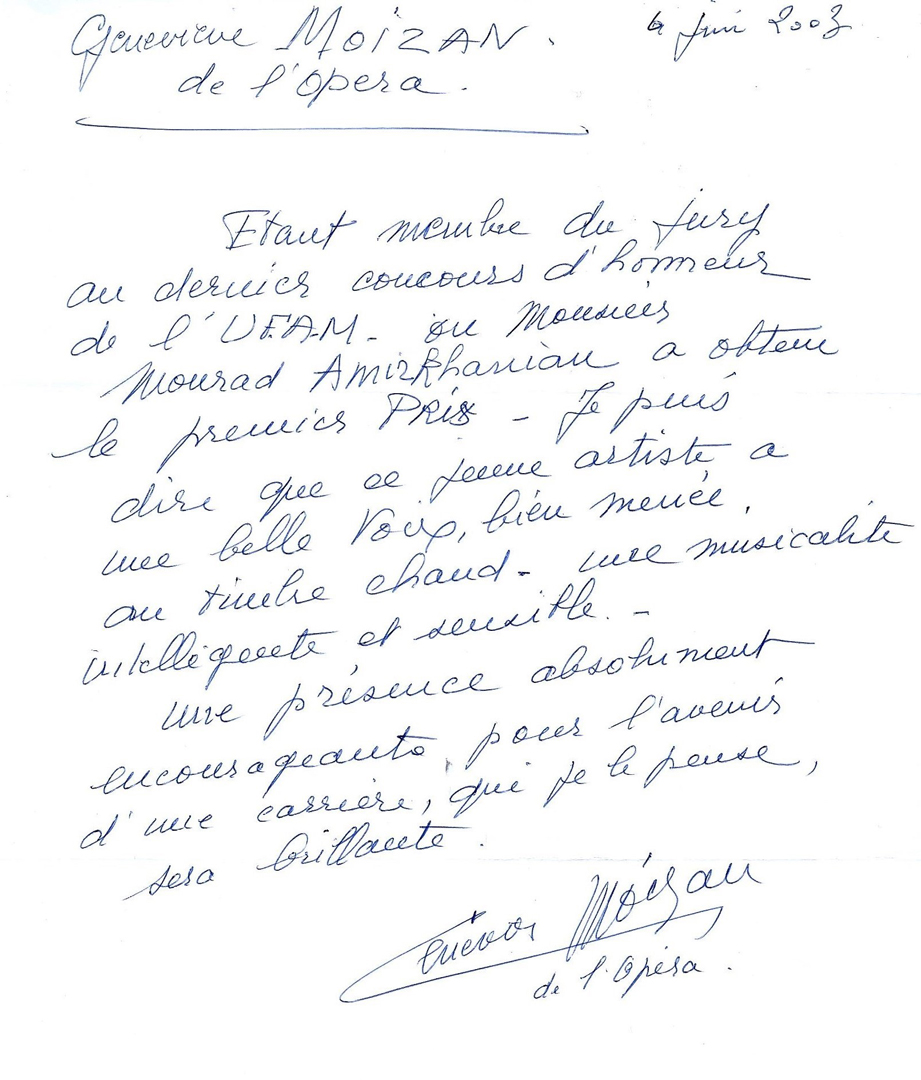 Geneviève MOÏZAN.
4 juin 2003
de l'Opera.
Etant membre du jury
au dernier concours d'honneur
de l'UFAM - ou Monsieur
Mourad Amirkhanian a obtenu
le premier Prix - Je puis
dire que ce jeune artiste a
une belle Voix, bien menée,
au timbre chaud - une musicalité
intelligente et sensible. -
une présence absolument
encourageante, pour l'avenir
d'une carrière, qui je le pense,
sera brillante.
Moizan
de l'Opéra.